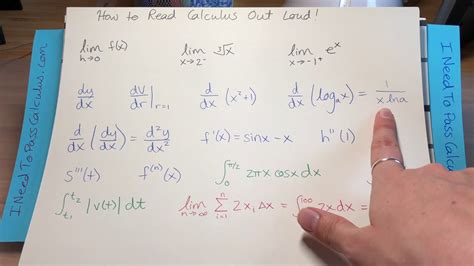 How to Read Calculus Out Loud!
lim h→0 f(x) lim x→2⁻ ∛x lim x→-1⁺ eˣ
dy/dx dV/dr|r=1 d/dx (x²+1) d/dx (logₐx) = 1/(x lna)
d/dx (dy/dx) = d²y/dx² f'(x) = sinx - x h''(1)
s'''(t) f⁽ⁿ⁾(x) ∫₀^(π/2) 2πx cosx dx
∫_(t₁)^(t₂) |v(t)| dt lim n→∞ Σ_(i=1)^n 2xᵢ Δx = ∫^100 2x dx =
I Need To Pass Calculus.com
I Need To Pass Calculus.